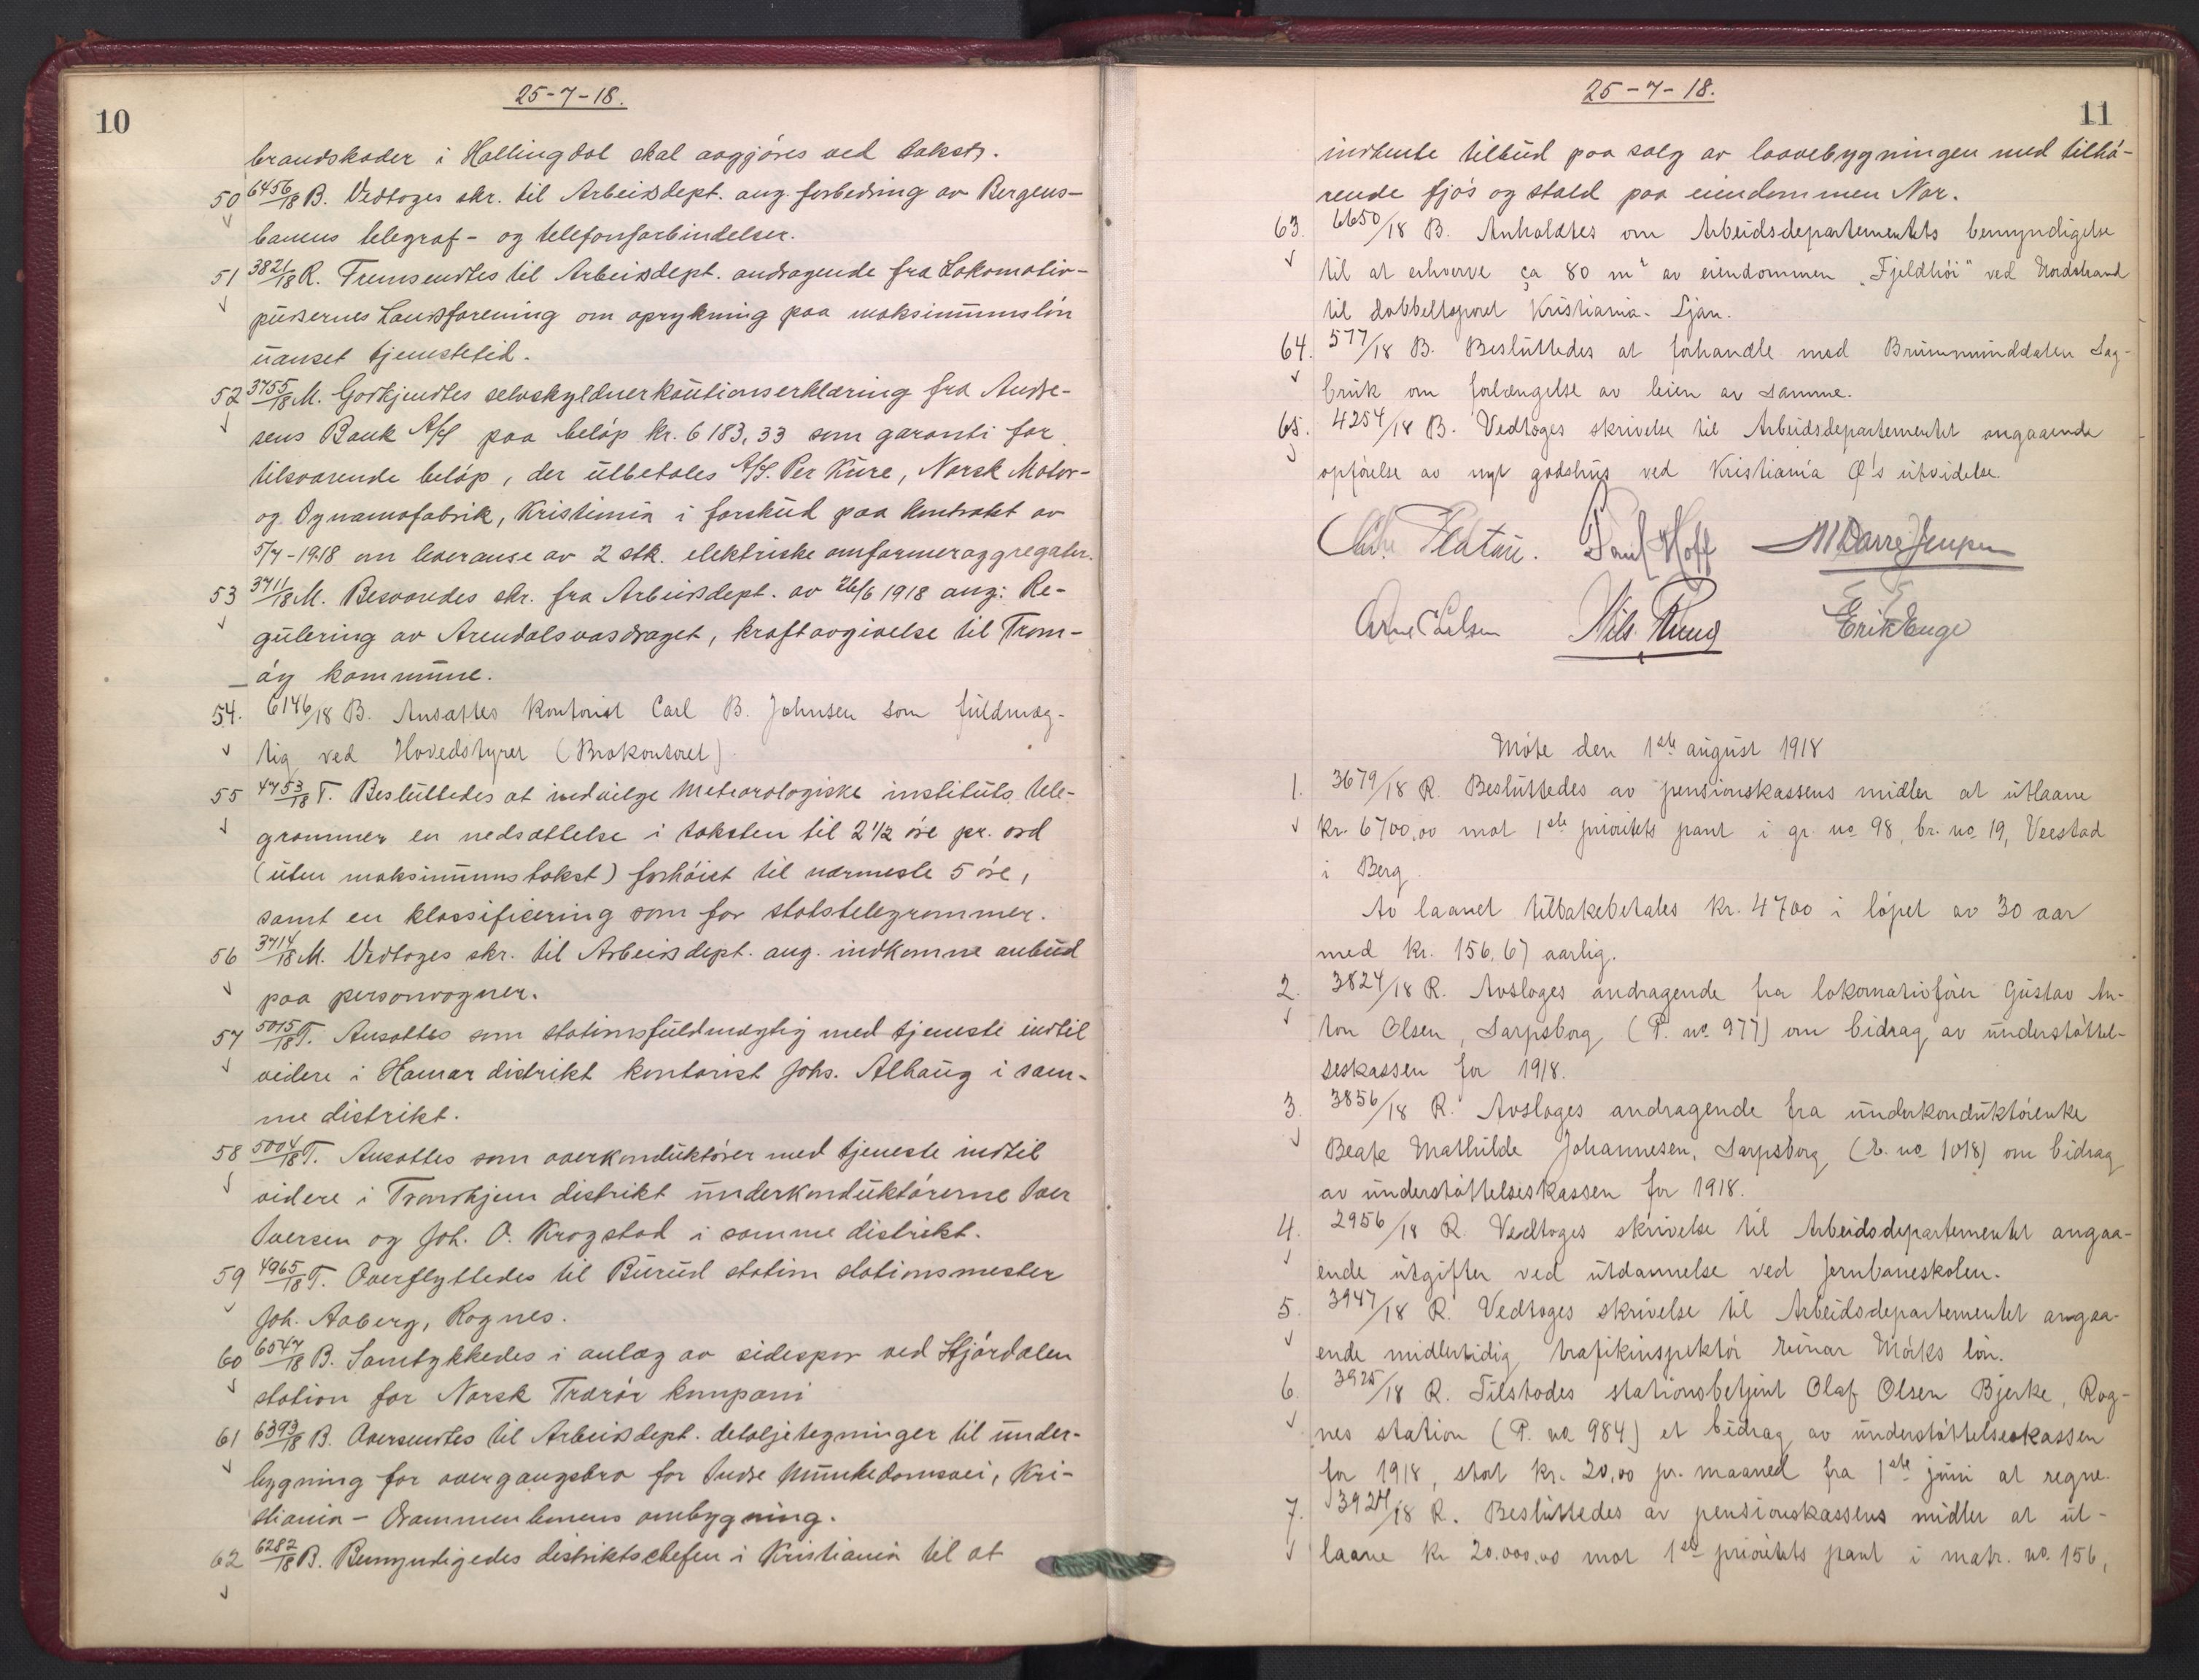 10
25-7-18.
brandskader i Hallingdal skal avgjöres ved takst.
50 6456/18 B. Vedtoges skr. til Arbeidsdept. ang. forbedring av Bergens-
banens telegraf- og telefonforbindelser.
51 3821/18 R. Fremsendtes til Arbeidsdept. andragende fra Lokomotiv-
pussernes Landsforening om oprykning paa maksimumslön
uanset tjenestetid.
52 3755/18 M. Godkjendtes selvskyldnerkautionserklæring fra Andre-
sens Bank A/S paa belöp kr. 6183,33 som garanti for
tilsvarende belöp, der utbetales A/S. Per Kure, Norsk Motor-
og Dynamofabrik, Kristiania i forskud paa kontrakt av
5/7-1918 om leveranse av 2 stk. elektriske omformeraggregater.
53 3711/18 M. Besvaredes skr. fra Arbeidsdept. av 26/6 1918 ang: Re-
gulering av Arendalsvasdraget, kraftavgivelse til Trom-
öy kommune.
54. 6146/18 B. Ansattes kontorist Carl B. Johnsen som fuldmæg-
tig ved Hovedstyret (Brokontoret)
55 4753/18 T. Besluttedes at indvilge Meteorologiske instituts tele-
grammer en nedsættelse i taksten til 2 1/2 öre pr. ord
(uten maksimumstakst) forhöiet til nærmeste 5 öre,
samt en klassificering som for statstelegrammer.
56 3714/18 M. Vedtoges skr. til Arbeidsdept. ang. indkomne anbud
paa personvogner.
57 5015/18 T. Ansattes som stationsfuldmægtig med tjeneste indtil
videre i Hamar distrikt kontorist Johs. Alhaug i sam-
me distrikt.
58 5004/18 T. Ansattes som overkonduktörer med tjeneste indtil
videre i Trondhjem distrikt underkonduktörerne Iver
Iversen og Joh. O. Krogstad i samme distrikt.
59 4965/18 T. Overflyttedes til Burud station stationsmester
Joh. Aaberg, Rognes.
60 6547/18 B. Samtykkedes i anlæg av sidespor ved Hjördalen
station for Norsk Trærör kompani
61 6393/18 B. Oversendtes til Arbeidsdept. detaljetegninger til under-
bygning for overgangsbro for Indre Munkedamsvei, Kri-
stiania - Drammenbanens ombygning.
62 6282/18 B. Bemyndigedes distriktschefen i Kristiania til at
25-7-18.
11
indhente tilbud paa salg av laavebygningen med tilhö-
rende fjös og stald paa eiendommen Nor.
63. 6650/18 B. Anholdtes om Arbeidsdepartementets bemyndigelse
til at erhverve ca 80 m² av eiendommen "Fjeldhöi" ved Nordstrand
til dobbeltsporet Kristiania - Ljan.
64. 577/18 B. Besluttedes at forhandle med Brummunddalen Sag-
bruk om forlængelse av leien av samme.
65. 4254/18 B. Vedtoges skrivelse til Arbeidsdepartementet angaaende
opförelse av nyt godshus ved Kristiania Ø's utvidelse.
Chr. Platou. Paul Hoff M Darre Jenssen
Arne Carlsen Nils Ruud Erik Enge
Möte den 1ste august 1918
1. 3679/18 R. Besluttedes av pensionskassens midler at utlaane
kr. 6700,00 mot 1ste prioritets pant i gr. no 98, br. no 19, Veestad
i Berg.
Av laanet tilbakebetales kr. 4700 i löpet av 30 aar
med kr. 156,67 aarlig.
2. 3824/18 R. Avsloges andragende fra lokomotivförer Gustav An-
ton Olsen, Sarpsborg (P. no. 977) om bidrag av understöttel-
seskassen for 1918.
3. 3856/18 R. Avsloges andragende fra underkonduktörenke
Beate Mathilde Johannesen, Sarpsborg (E. no 1018) om bidrag
av understöttelseskassen for 1918.
4. 2956/18 R. Vedtoges skrivelse til Arbeidsdepartementet angaa-
ende utgifter ved utdannelse ved Jernbaneskolen.
5. 3947/18 R. Vedtoges skrivelse til Arbeidsdepartementet angaa-
ende midlertidig trafikinspektör Einar Mörks lön.
6. 3925/18 R. Tilstodes stationsbetjent Olaf Olsen Bjerke, Rog-
nes station (P. no 984) et bidrag av understöttelseskassen
for 1918, stort kr. 20,00 pr. maaned fra 1ste juni at regne.
7. 3924/18 R. Besluttedes av pensionskassens midler at ut-
laane kr 20.000,00 mot 1ste prioritets pant i matr. no. 156,